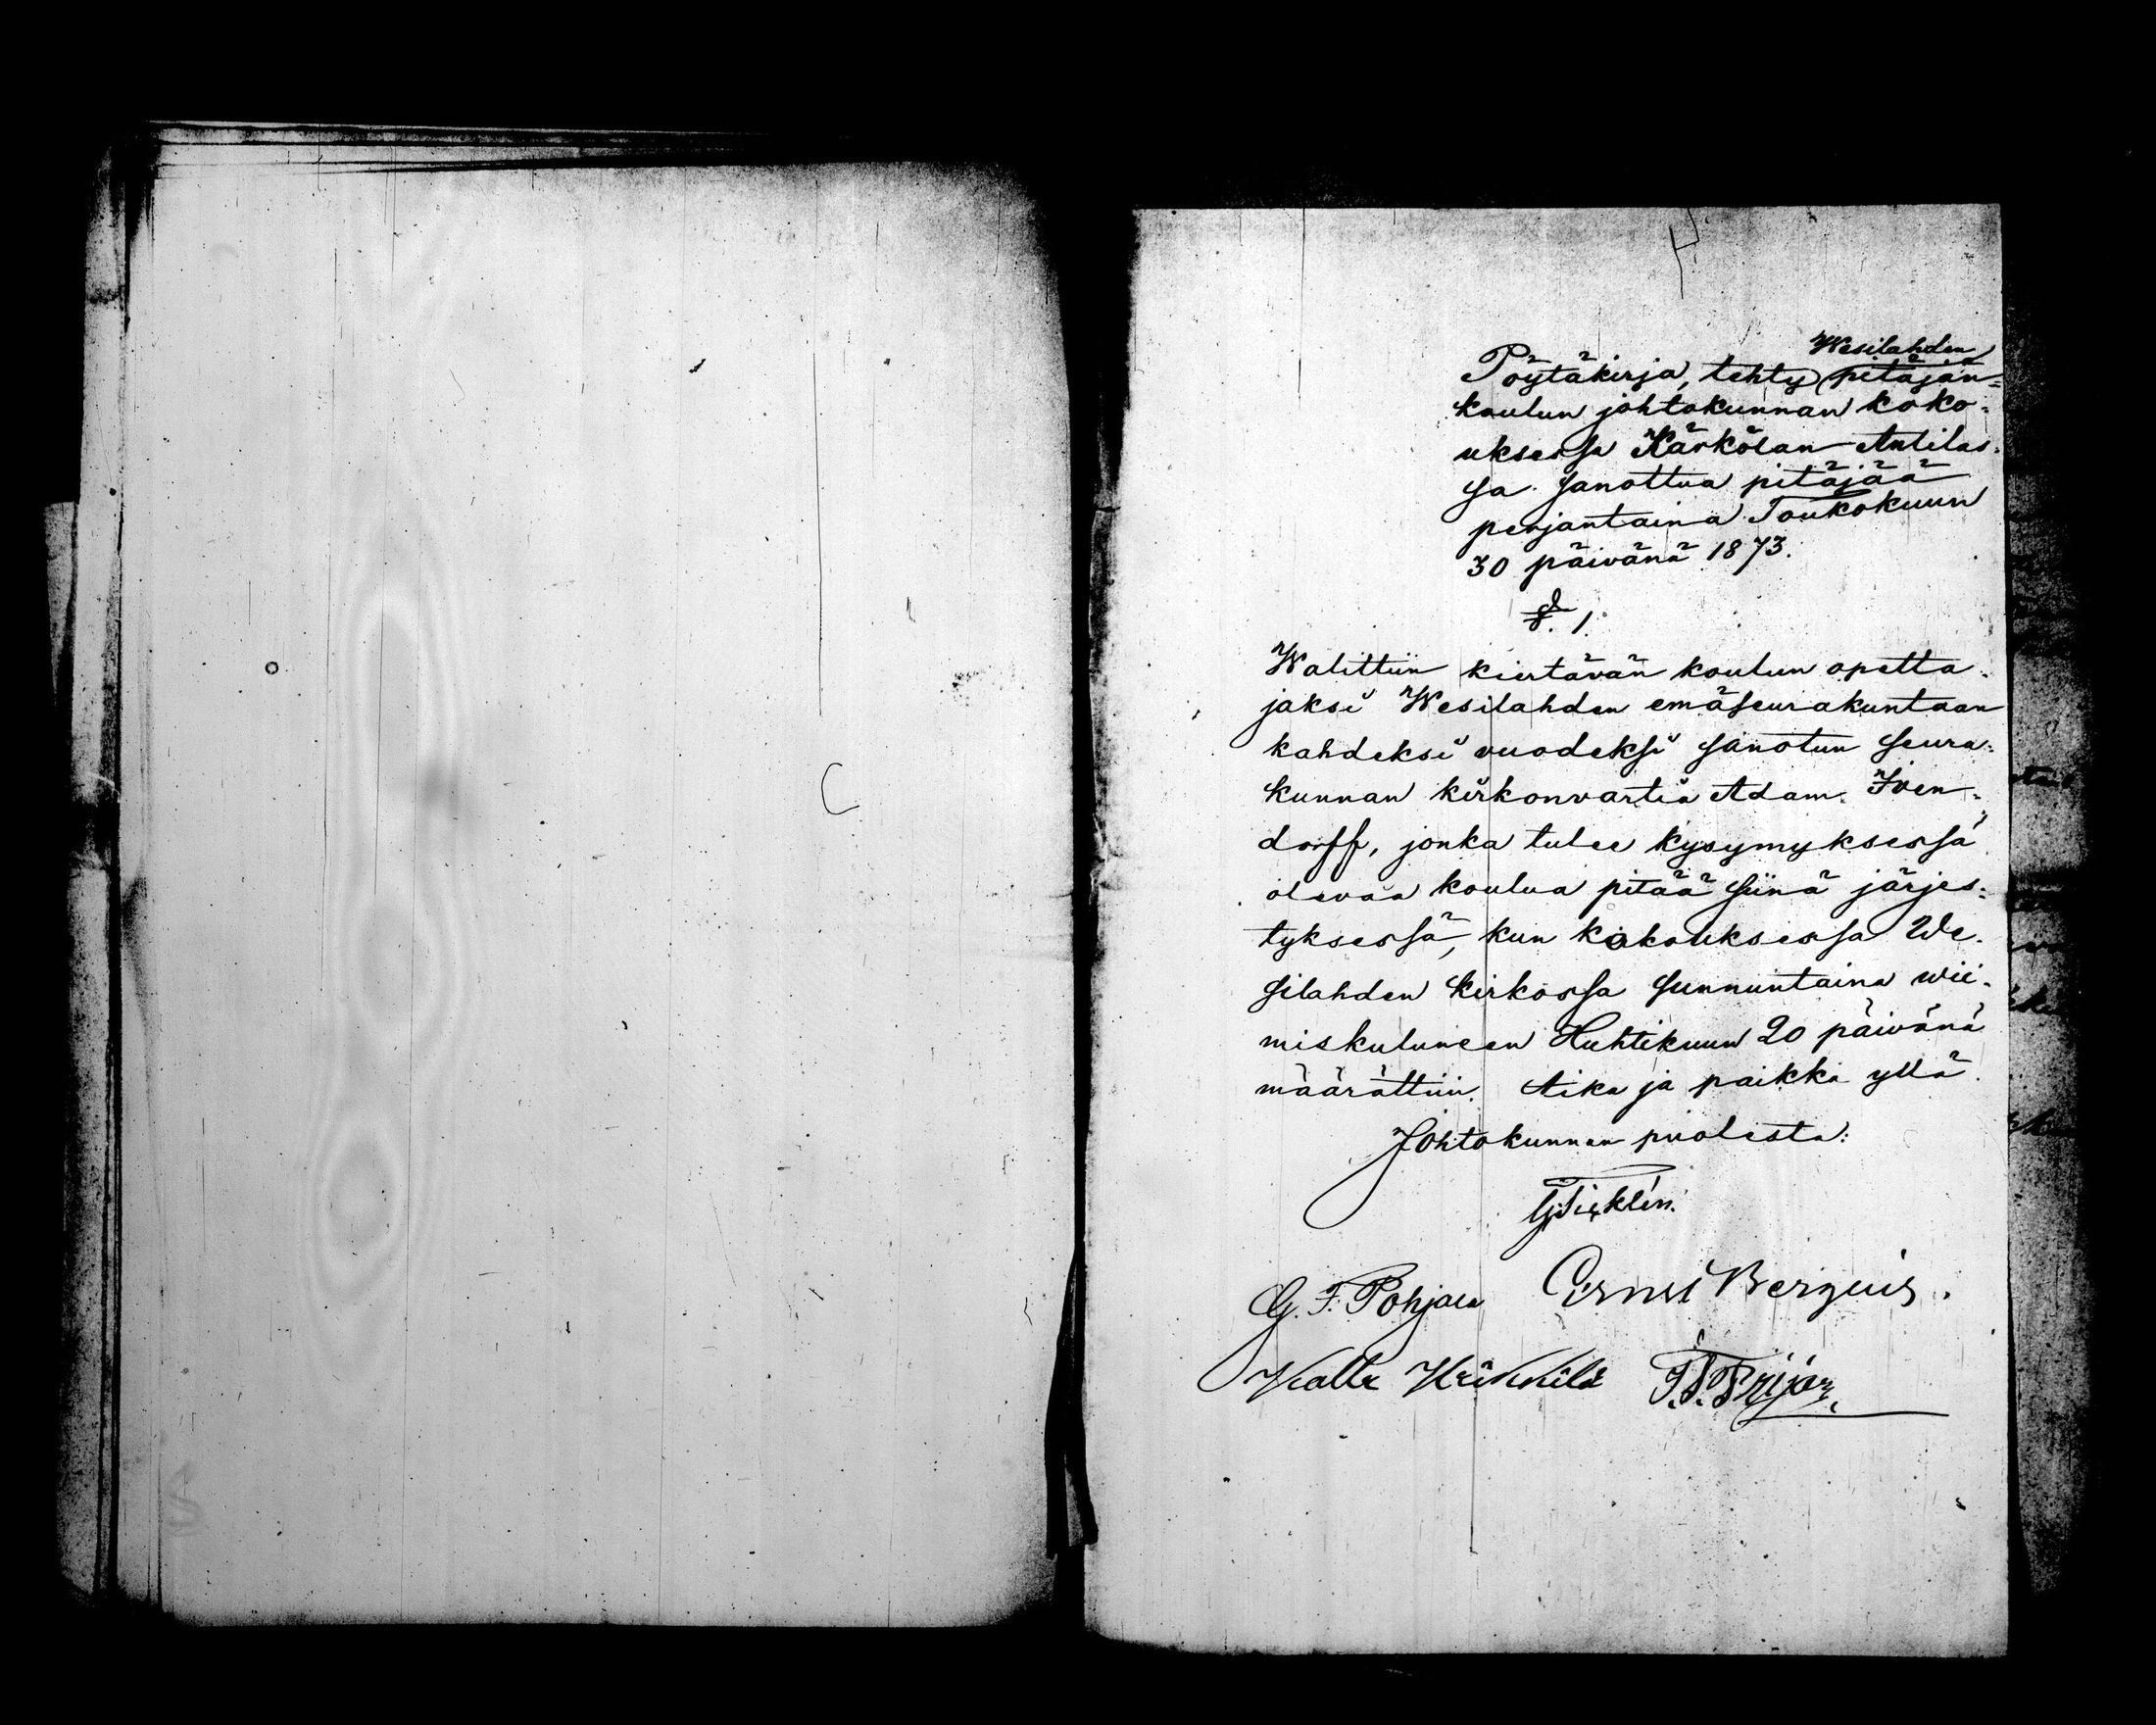 Wesilahden
Pöytäkirja, tehty pitäjän=
koulun johtokunnan koko=
uksessa Kärkölan Antilas=
sa sanottua pitäjää
perjantaina Toukokuun
30 päivänä 1873.
§. 1.
Walittiin kiertävän koulun opetta=
jaksi Wesilahden emäseurakuntaan
kahdeksi vuodeksi sanotun seura=
kunnan kirkonvartia Adam Iven=
dorff, jonka tulee kysymyksessä
olevaa koulua pitää siinä järjes=
tyksessä, kun kokouksessa We=
silahden kirkossa sunnuntaina wii=
miskuluneen Huhtikuun 20 päivänä
määrättiin. Aika ja paikka yllä.
Johtokunnan puolesta:
G. F. Pohjala
Kalle Heikkilä